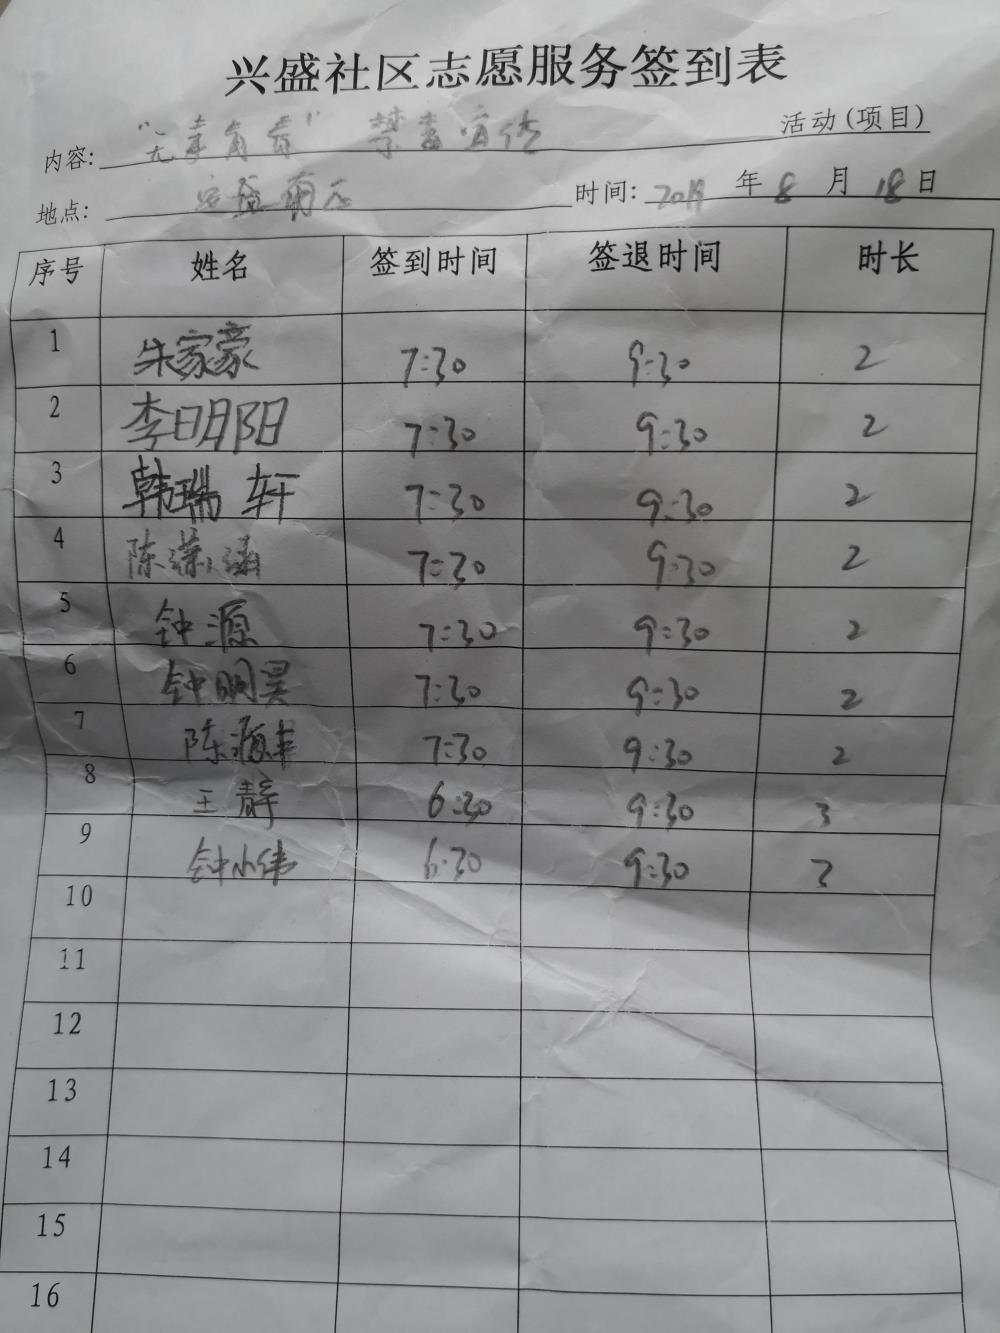 兴盛社区志愿服务签到表
内容: "无毒青春" 禁毒宣传 活动(项目)
地点: 南区 时间: 2019 年 8 月 18 日
序号 姓名 签到时间 签退时间 时长
1 朱家豪 7:30 9:30 2
2 李明阳 7:30 9:30 2
3 韩瑞轩 7:30 9:30 2
4 陈潇涵 7:30 9:30 2
5 钟源 7:30 9:30 2
6 钟明昊 7:30 9:30 2
7 陈源丰 7:30 9:30 2
8 王静 6:30 9:30 3
9 钟小伟 6:30 9:30 3
10
11
12
13
14
15
16